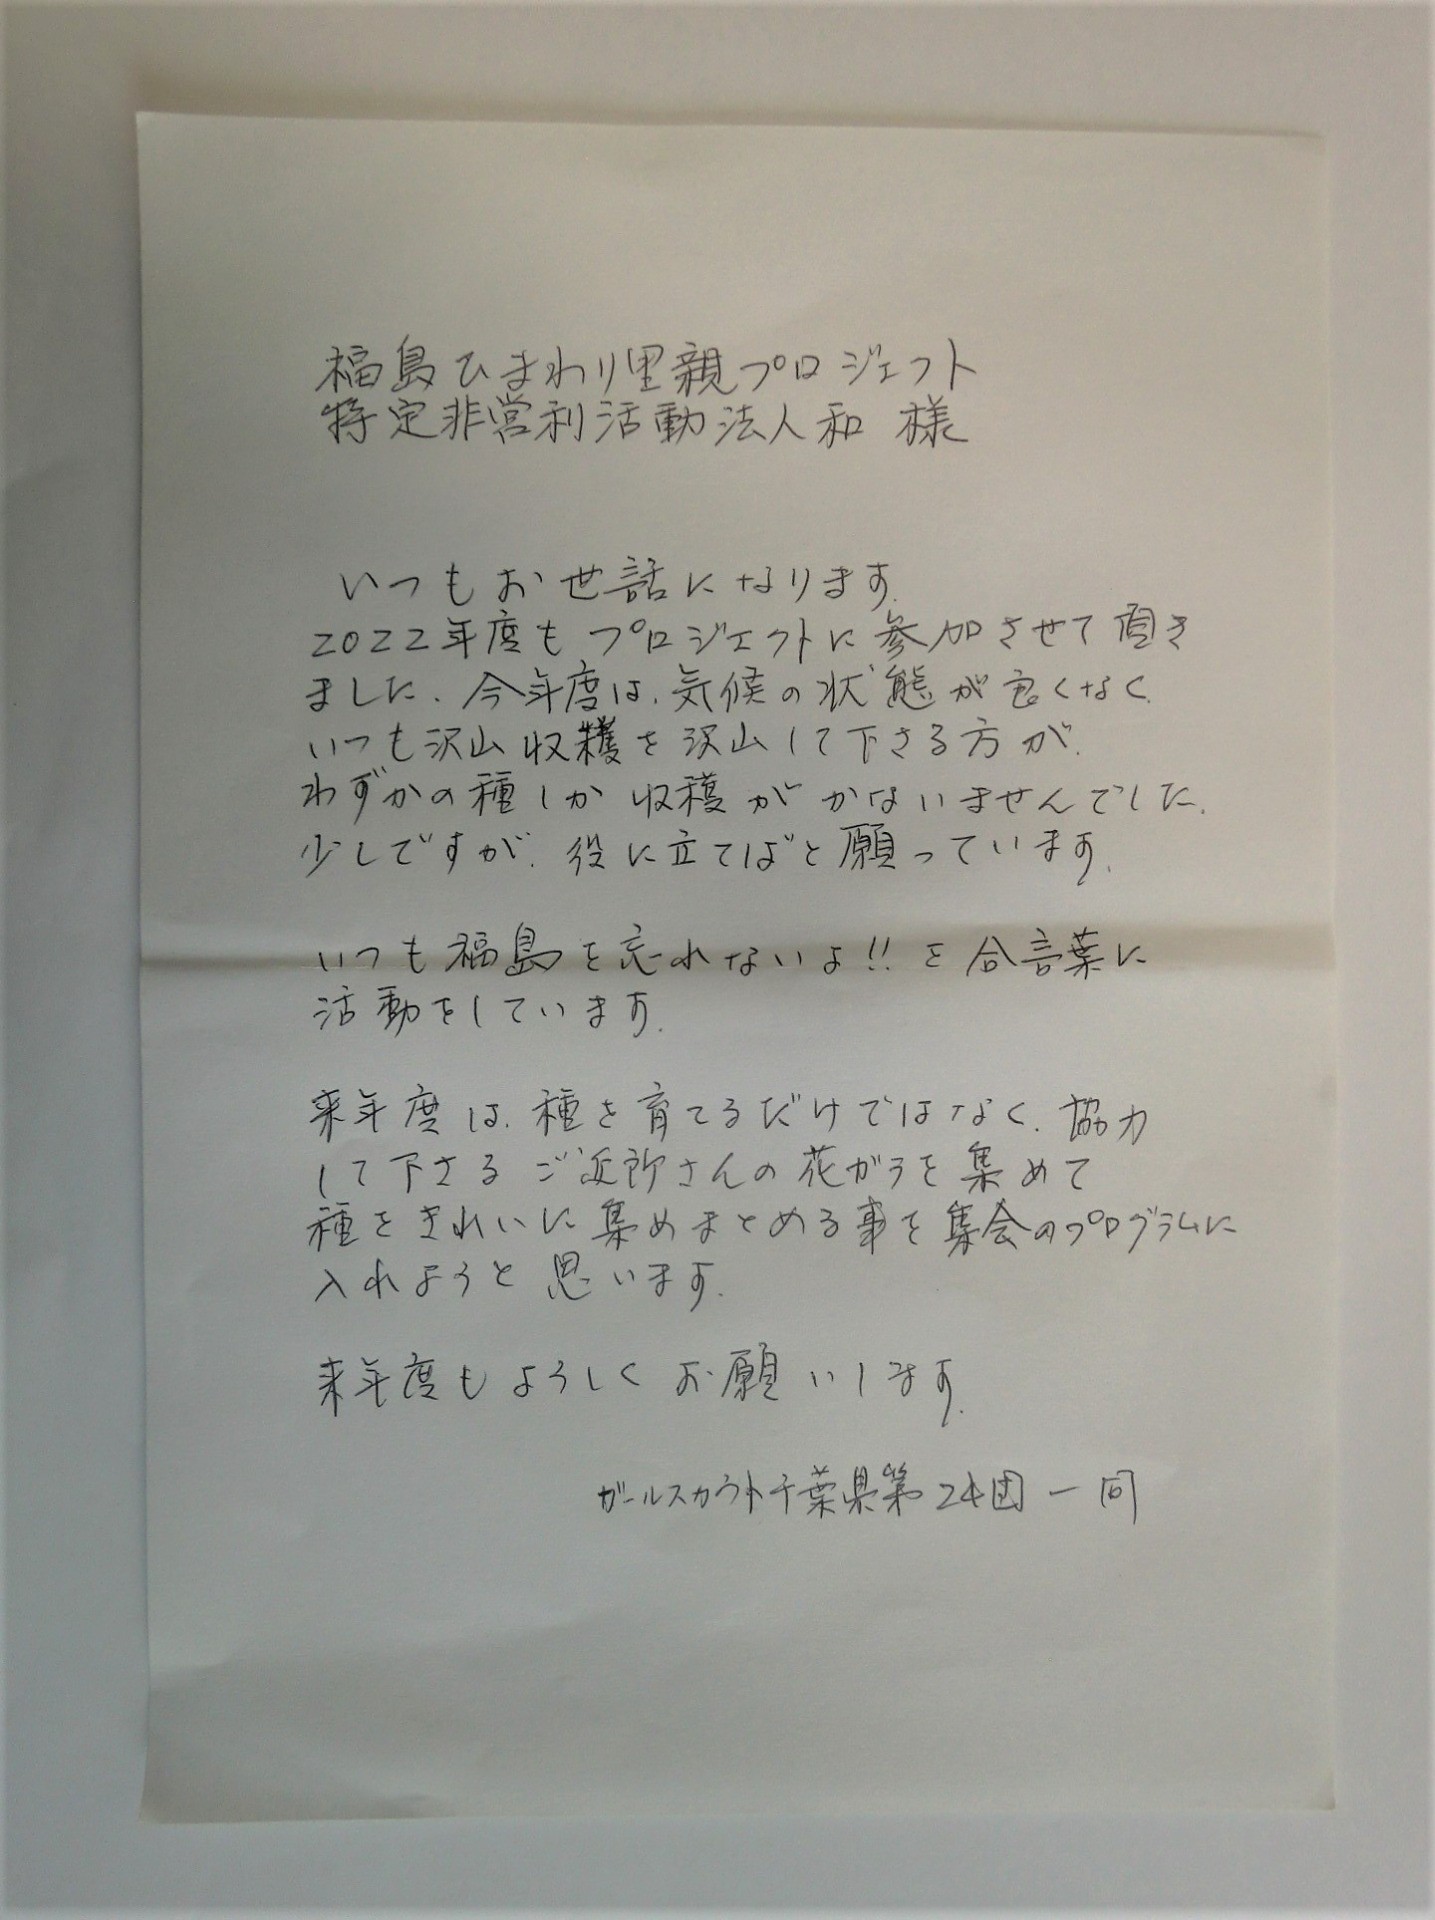 福島ひまわり里親プロジェクト
特定非営利活動法人和 様
いつもお世話になります.
2022年度もプロジェクトに参加させて頂き
ました. 今年度は、気候の状態が良くなく
いつも沢山収穫を沢山して下さる方が、
わずかの種しか収穫がかないませんでした.
少しですが、役に立てばと願っています.
いつも福島を忘れないよ!!を合言葉に
活動をしています.
来年度は、種を育てるだけではなく、協力
して下さるご近所さんの花がらを集めて
種をきれいに集めまとめる事を集会のプログラムに
入れようと思います.
来年度もよろしくお願いします.
ガールスカウト千葉県第24団一同